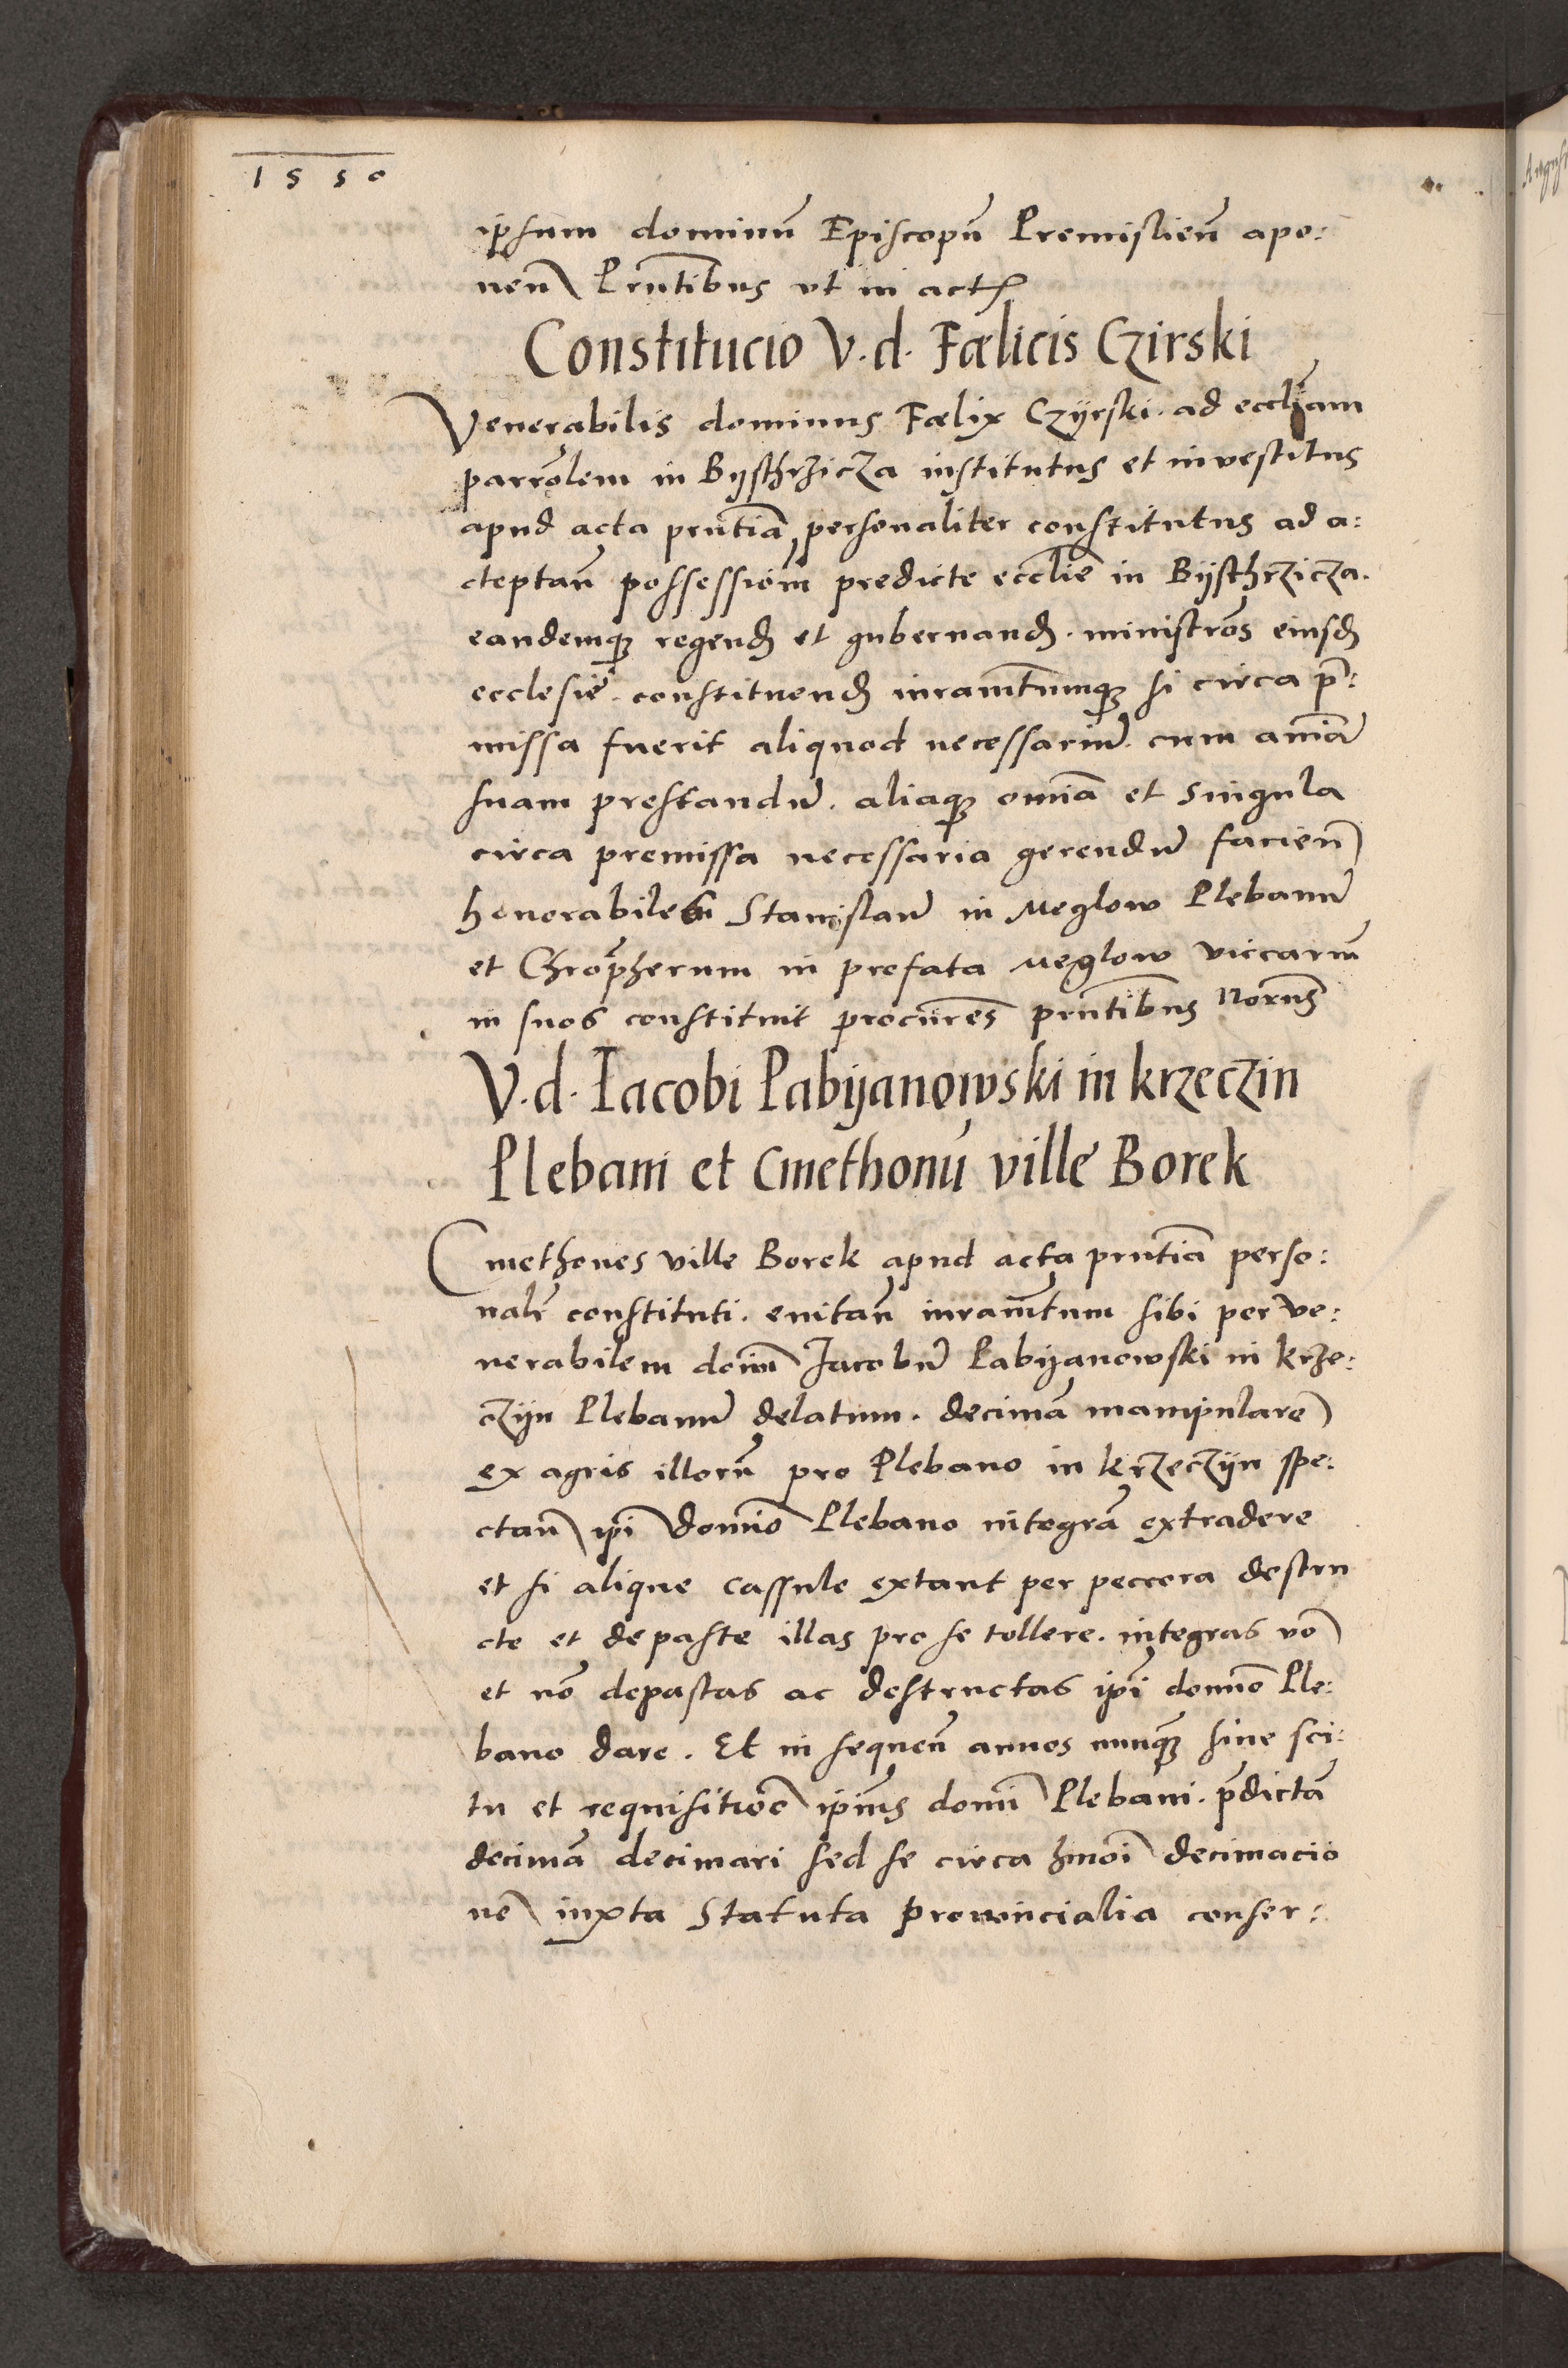 1550
ipsum dominū Episcopū Premislieñ apo:
neñ Pñtibus vt in actis
Constitucio V. d. Fœlicis Czirski
Venerabilis dominus Fœlix Czÿrski. ad eccl̃iam
parrõlem in Bÿsthrzicza institutus et investitus
apud acta pñtia personaliter constitutus ad a:
cceptañ possessiõm predicte eccl̃ie in Bÿsthrzicza.
eandemq; regend et gubernand. ministros eiusd
ecclesie. constituend iuramtumq; si circa p̃:
missa fuerit aliquod necessariū. cum aĩam
suam prestandū. aliaq; om̃ia et singula
circa premissa necessaria gerendū facieñ
honorabiles Stanislaū in Meglow Plebanū
et Chrõpherum in prefata Meglow viccariū
in suos constituit procũres pñtibus Norũs
V. d. Iacobi Pabÿanowski in krzeczin
Plebani et Cmethonū ville Borek
Cmethones ville Borek apud acta pñtia perso:
nalr̃ constituti. euitañ iuram̃tum sibi per ve:
nerabilem dom̃ Iacobū Pabÿanowski in krze:
czÿn Plebanū delatum. decimā manipularē
ex agris illorū pro Plebano in krzeczÿn spe:
ctañ ip̃i Domĩo Plebano integrā extradere
et si alique cassule extant per peccora destru
cte et depaste illas pro se tollere. integras vo
et nō depastas ac destructas ip̃i domĩo Ple:
bano dare. Et in sequeñ annos nunq̃ sine sci:
tu et requisitiõe ip̃ius domĩ Plebani. p̃dictā
decimā decimari sed se circa hm̃oi decimacio
nē iuxta Statuta prouincialia conser: